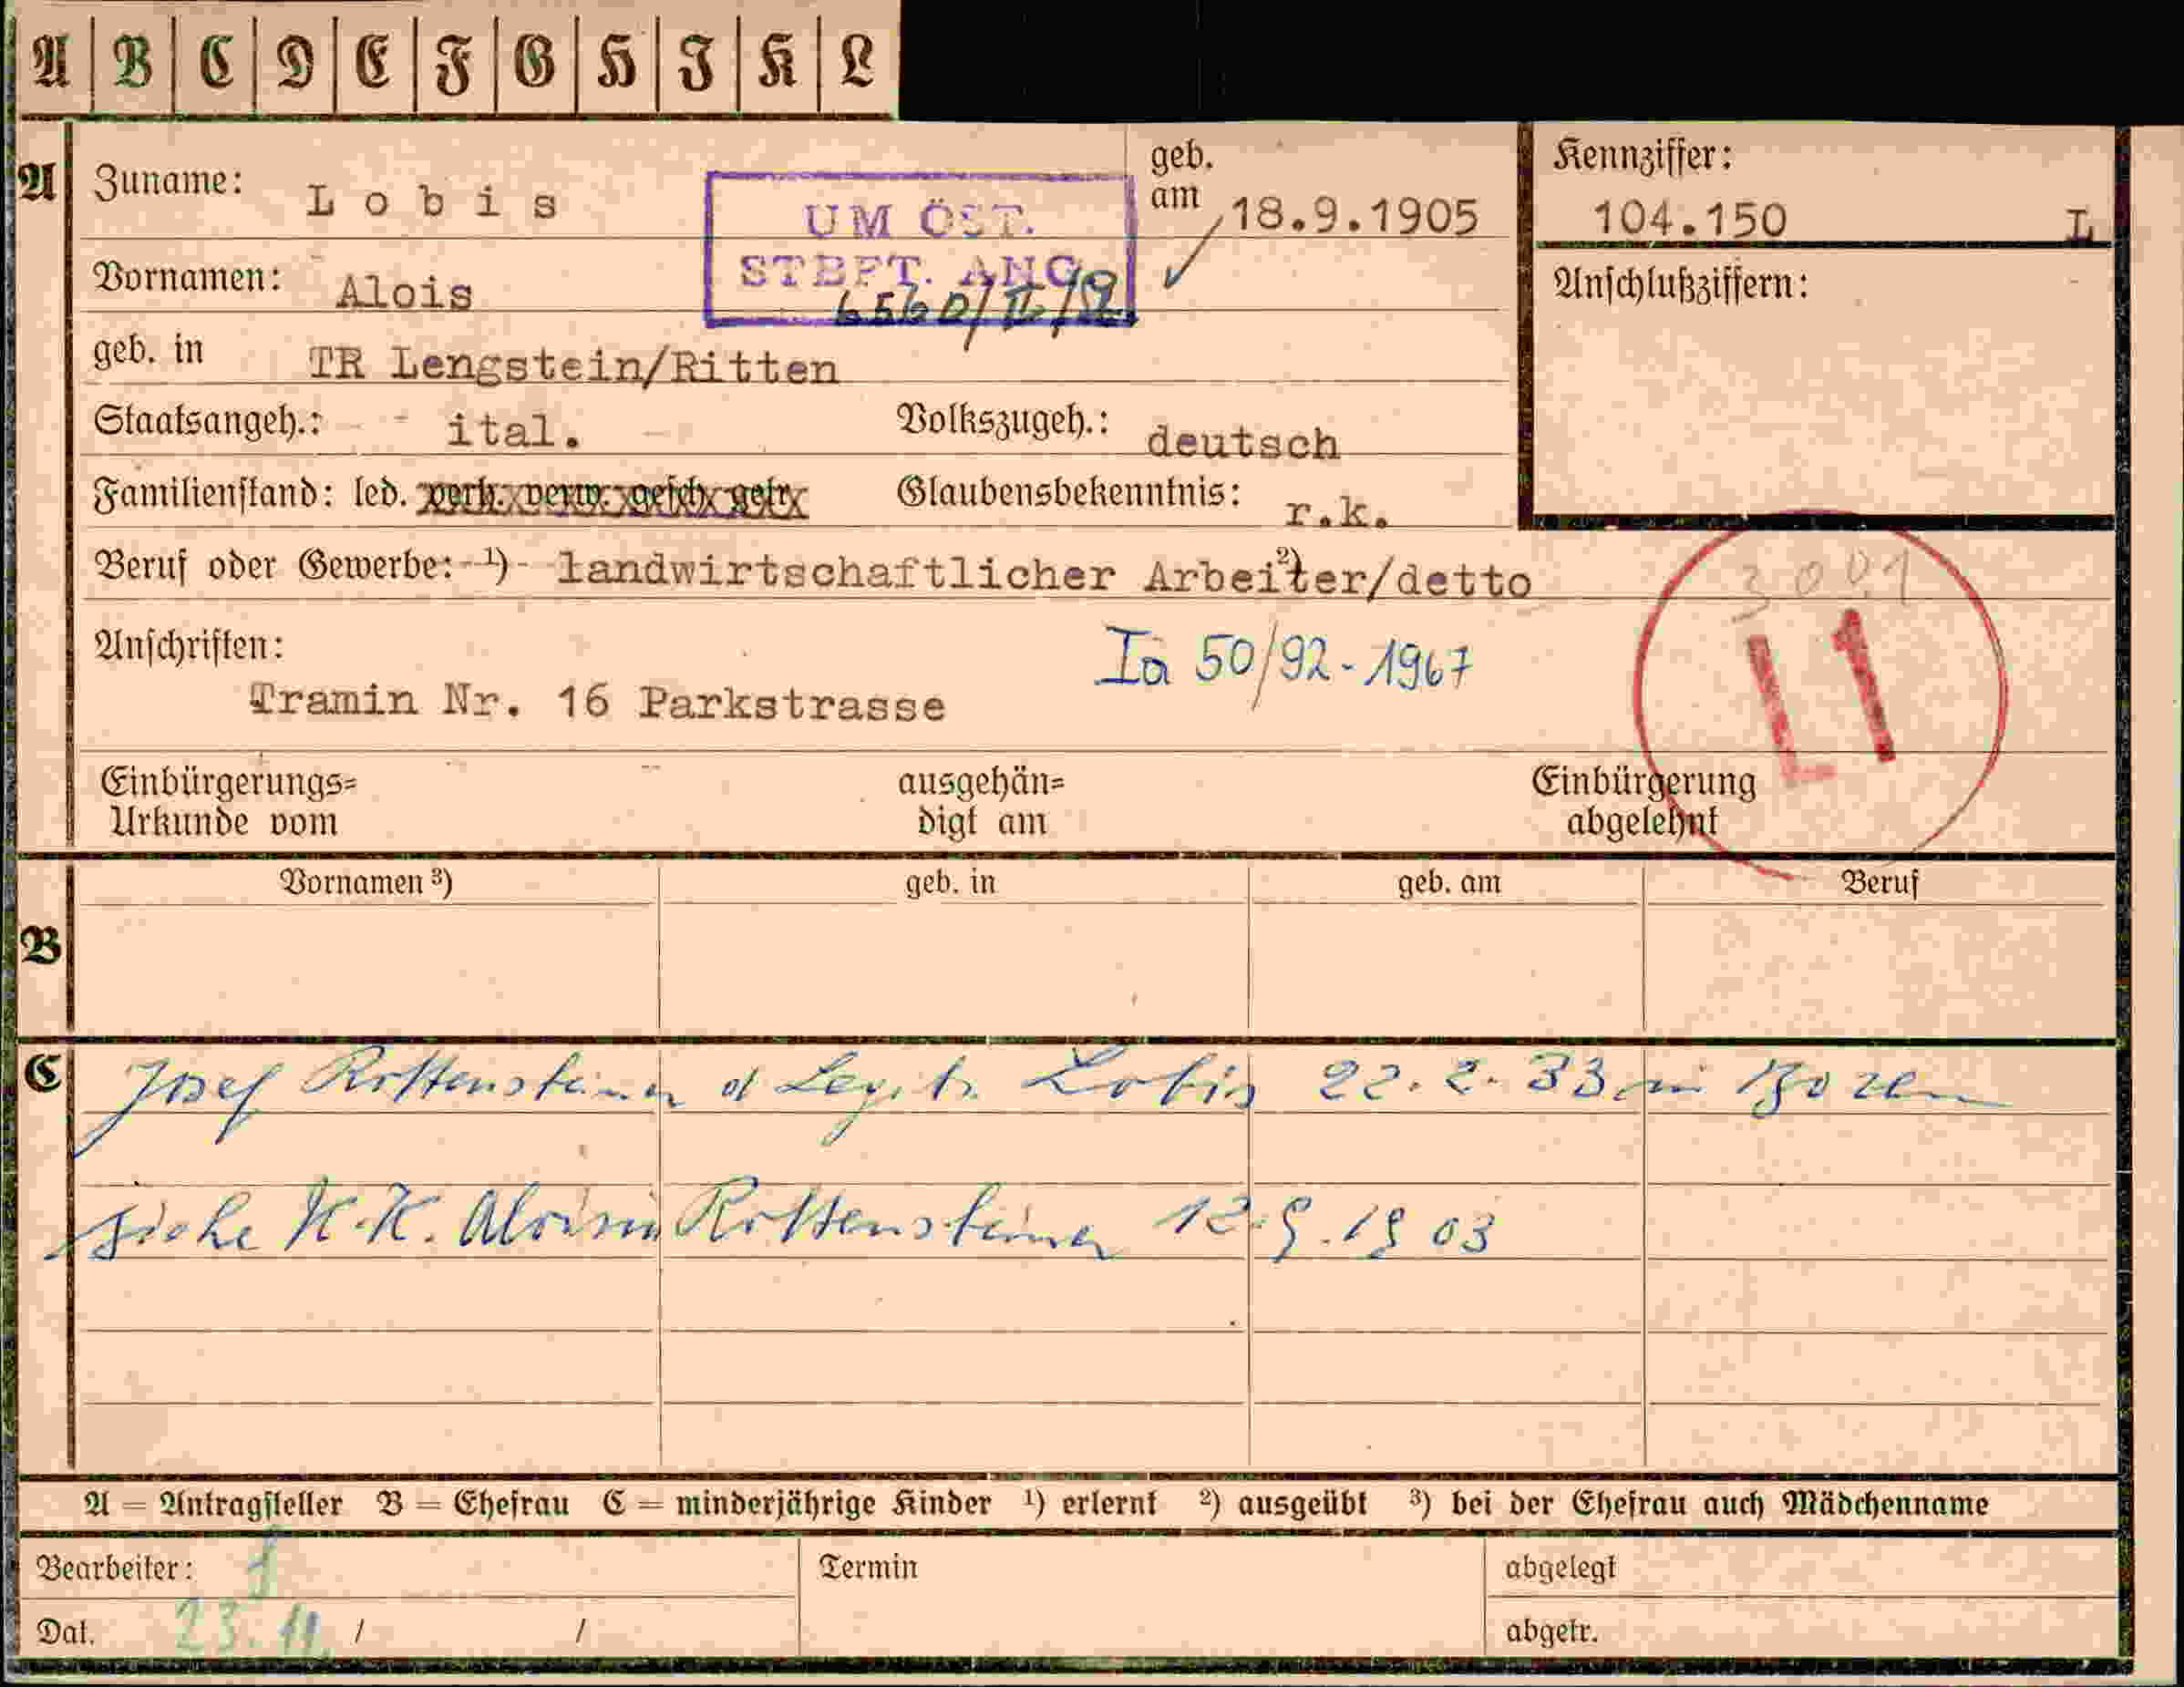 A B C D E F G H I K L
A
Zuname: Lobis
geb. am 18.9.1905
Kennziffer:
104.150 L
UM ÖST.
STBFT. ANG
Vornamen: Alois
Anschlußziffern:
geb. in TR Lengstein/Ritten
Staatsangeh.: ital. Volkszugeh.: deutsch
Familienstand: led. verh. verw. gesch. getr. Glaubensbekenntnis: r.k.
Beruf oder Gewerbe: ¹) landwirtschaftlicher Arbeiter/detto ²)
3001
L1
Anschriften:
Ia 50/92-1967
Tramin Nr. 16 Parkstrasse
Einbürgerungs=
Urkunde vom
ausgehän=
digt am
Einbürgerung
abgelehnt
B
Vornamen ³) geb. in geb. am Beruf
C
Josef Rottensteiner Legit. Lobis 22.2.33 in Bozen
siehe K.K. Aloisia Rottensteiner 12.9.1903
A = Antragsteller B = Ehefrau C = minderjährige Kinder ¹) erlernt ²) ausgeübt ³) bei der Ehefrau auch Mädchenname
Bearbeiter:
Termin
abgelegt
Dat. 23.11. / /
abgetr.